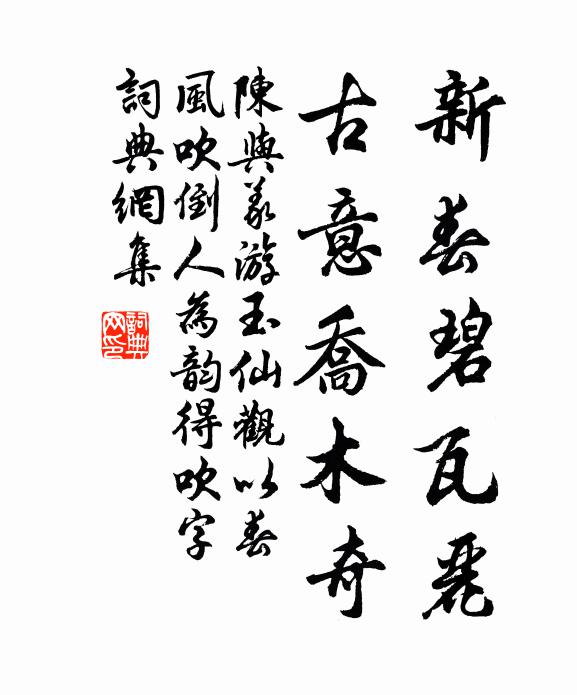 新春碧瓦麗
古意喬木奇
陳與義游玉仙觀以春
風吹倒人為韵得吹字
詞典網集
詞典網印